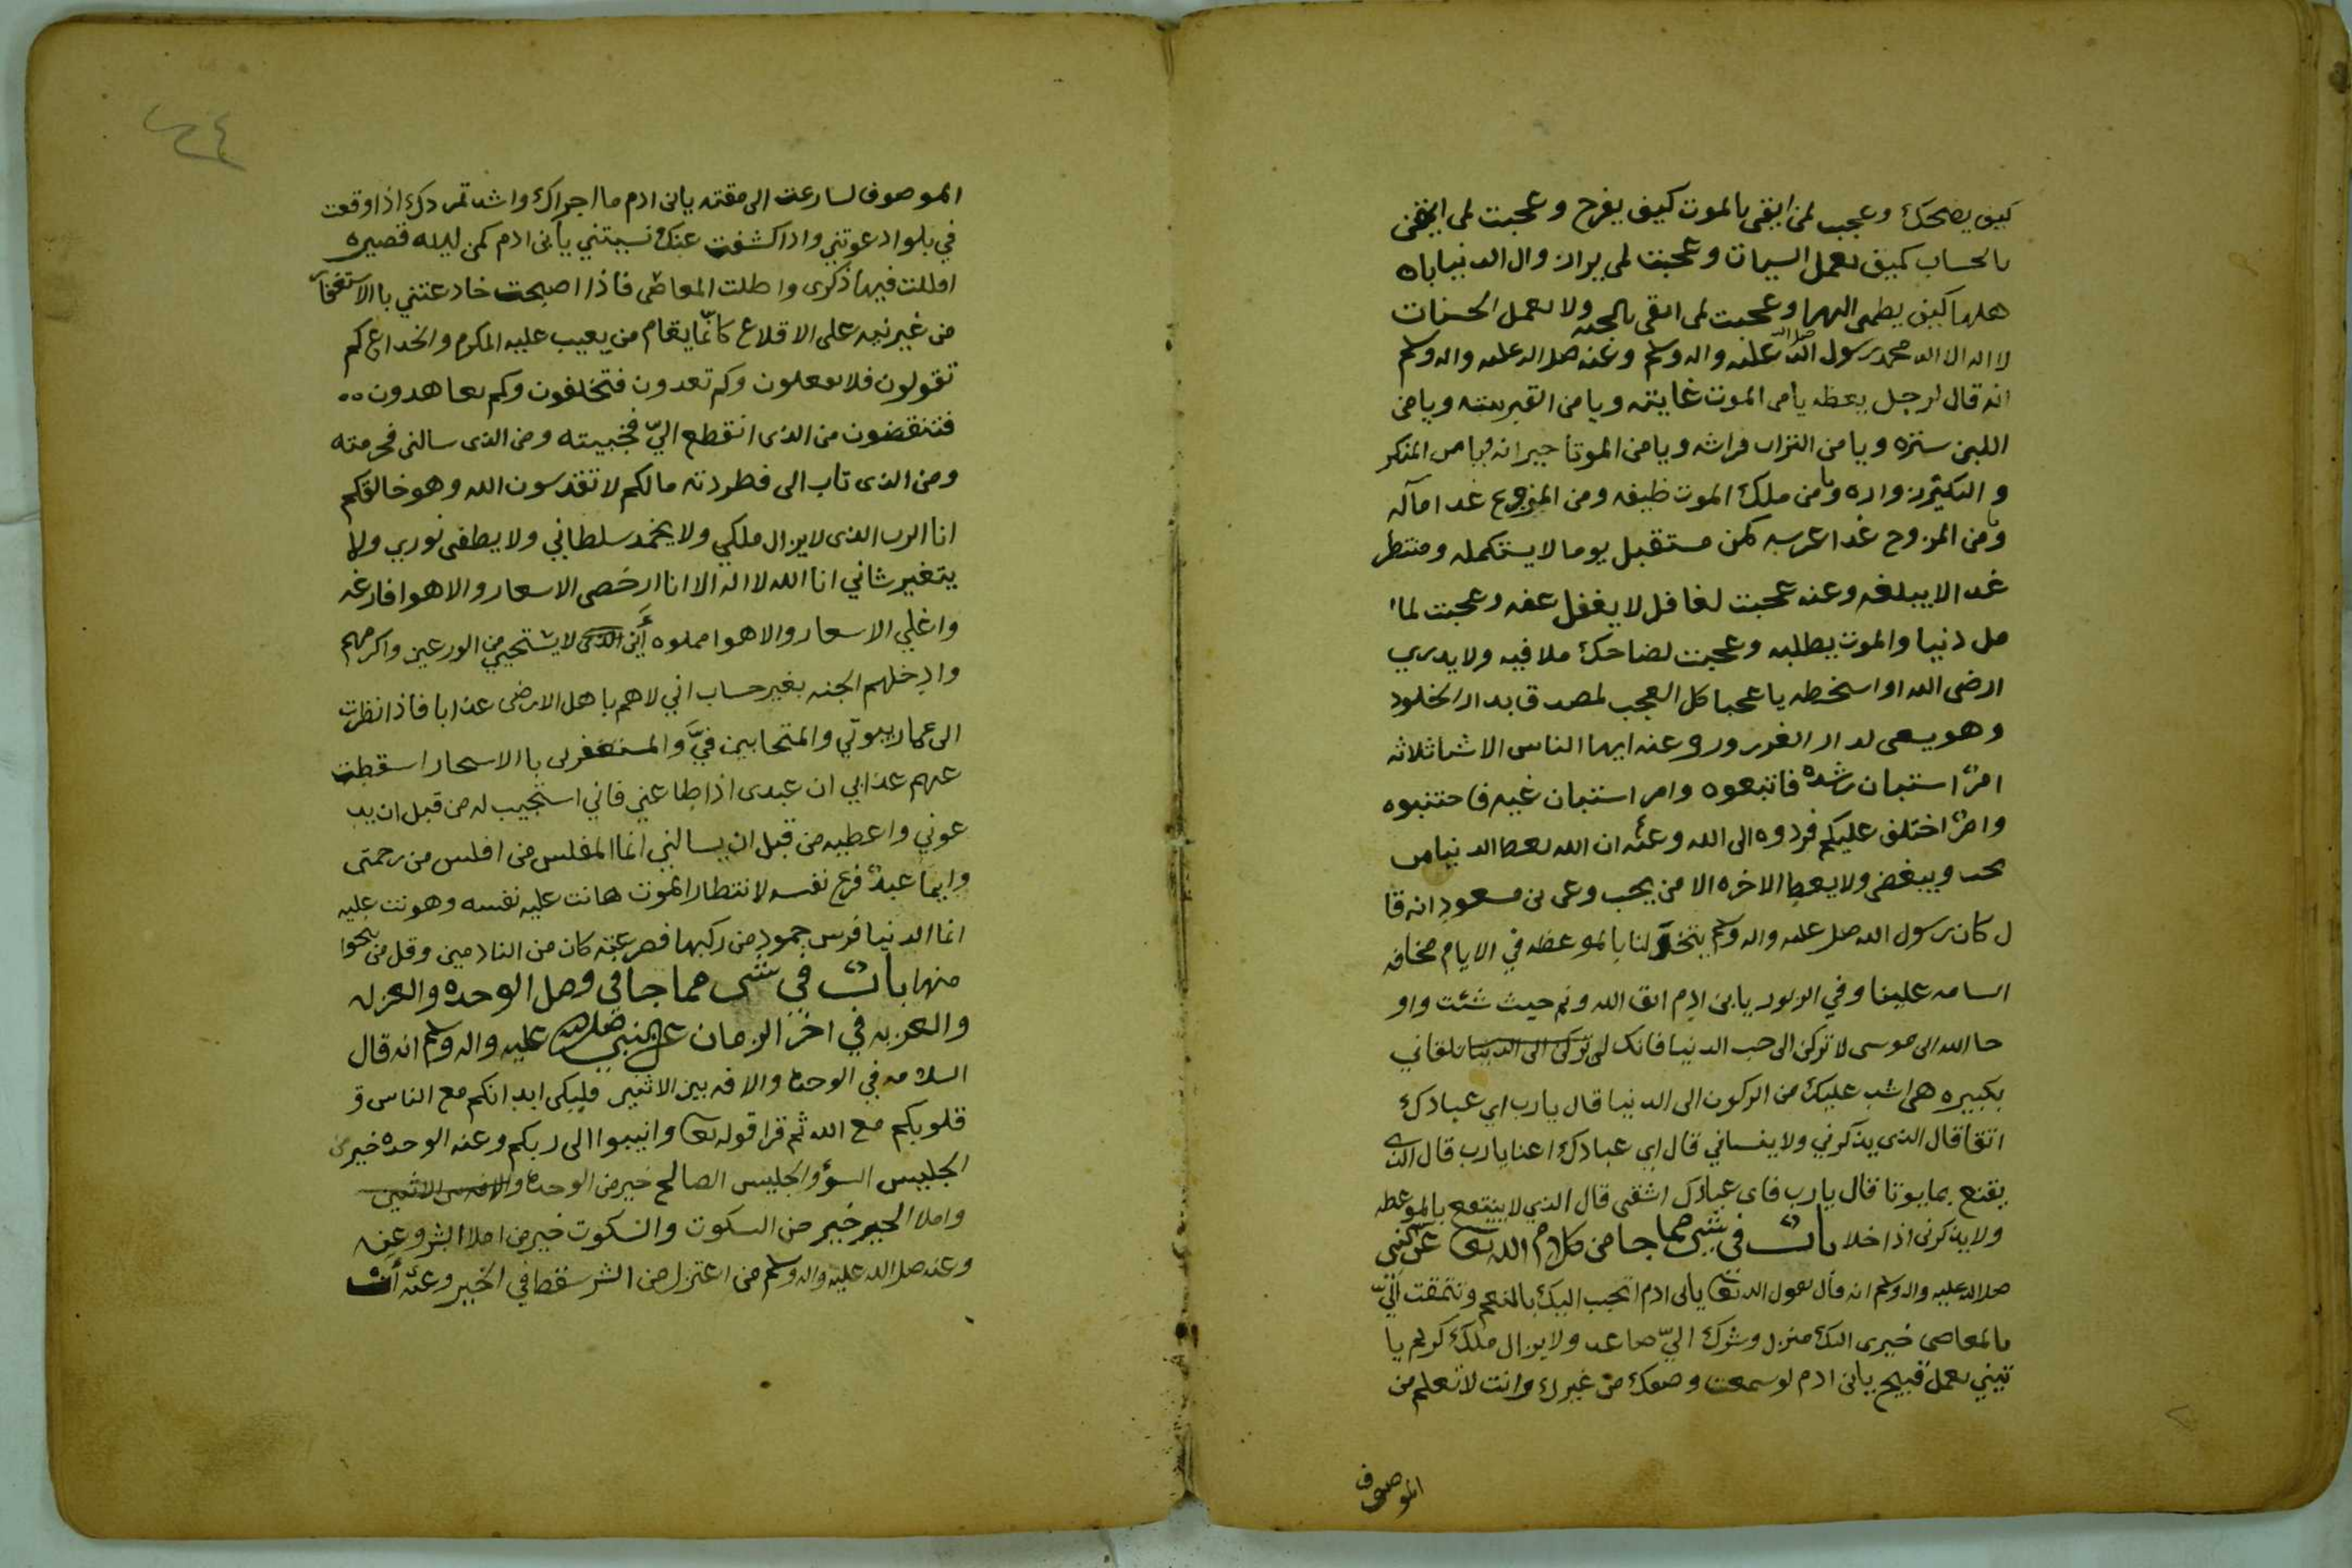 كيف يضحك وعجب لمن ايقن بالموت كيف يفرح وعجبت لمن ايقن
بالحساب كيف يعمل السيئات وعجبت لمن يرا زوال الدنيا باه
هلها كيف يطمئن اليها وعجبت لمن ايقن بالجنه ولا يعمل الحسنات
لا اله الا الله محمد رسول الله صلى الله عليه واله وسلم وعنه صلى الله عليه واله وسلم
انه قال لرجل يعظه يامن الموت غايته ويامن القبر بيته ويامن
اللبن ستره ويامن التراب فراشه ويامن الموتا جيرانه ويامن المنكر
والنكير زواره ويامن ملك الموت ظيفه ومن المزعج غدا مآله
ومن المزوج غدا عرسه كمن مستقبل يوما لا يستكمله ومنتظر
غدا لا يبلغه وعنه عجبت لغافل لا يغفل عنه وعجبت لما
مل دنيا والموت يطلبه وعجبت لضاحك ملا فيه ولا يدري
ارضى الله او اسخطه يا عجبا كل العجب لمصدق بدار الخلود
وهو يسعى لدار الغرور وعنه ايها الناس الاشيا ثلاثه
امرٌ استبان رشده فاتبعوه وامر استبان غيه فاجتنبوه
وامرٌ اختلف عليكم فردوه الى الله وعنه ان الله يعط الدنيا من
يحب ويبغض ولا يعط الاخره الا من يحب وعن بن مسعود انه قا
ل كان رسول الله صلى عليه واله وسلم يتخولنا بالموعظه في الايام مخافه
السامه علينا وفي الزبور يابن ادم اتق الله ونم حيث شئت واو
حا الله الى موسى لا تركن الى حب الدنيا فانك لن تركن الى الدنيا تلقاني
بكبيره هي اشد عليك من الركون الى الدنيا قال يارب اي عبادك
اتقا قال الذي يذكرني ولا ينساني قال اي عبادك اغنا يارب قال الذي
يقنع بما يوتا قال يارب فاي عبادك اشقى قال الذي لا ينتفع بالموعظه
ولا يذكرني اذا خلا بابٌ في شي مما جا من كلام الله تعالى عن النبي
صلى الله عليه واله وسلم انه قال يقول الله تعالى يابن ادم اتحبب اليك بالنعم وتتمقت اليّ
بالمعاصي خيري اليك منزل وشرك اليّ صاعد ولا يزال ملك كريم يا
تيني بعمل قبيح يابن ادم لو سمعت وصفك من غيرك وانت لا تعلم من
الموصوف
الموصوف لسارعت الى مقته يابن ادم ما اجراك واشد تمردك اذا وقعت
في بلوا دعوتني واذا كشفت عنك نسيتني يابن ادم كمن ليله قصيره
امللت فيها ذكري واطلت المعاصي فاذا اصبحت خادعتني باالاستغفار
من غير نيه على الاقلاع كانما يقام من يعيب عليه المكرم والخداع كم
تقولون فلا تفعلون وكم تعدون فتخلفون وكم تعاهدون
فتنقضون من الذي انقطع اليّ فخيبته ومن الذي سالني فحرمته
ومن الذي تاب الى فطردته مالكم لا تقدسون الله وهو خالقكم
انا الرب الذي لا يزال ملكي ولا يخمد سلطاني ولا يطفى نوري ولا
يتغير شاني انا الله لا اله الا انا ارخص الاسعار والاهوا فارغه
واغلي الاسعار والاهوا مملوه أين الذي لا يستحيي من الورعين واكرمهم
وادخلهم الجنه بغير حساب اني لاهم باهل الارض عذابا فاذا نظرت
الى عمار بيوتي والمتحابين فيَّ والمستغفرين باالاسحار اسقطت
عنهم عذابي ان عبدي اذا طاعني فاني استجيب له من قبل ان يد
عوني واعطيه من قبل ان يسالني انما المفلس من افلس من رحمتي
وايما عبدٌ فرع نفسه لانتظار الموت هانت عليه نفسه وهونت عليه
انما الدنيا فرس جمود من ركبها فصرعته كان من النادمين وقل من نجوا
منها بابٌ في شي مما جا في وصل الوحده والعزله
والعزبه في اخر الزمان عن النبي صلى الله عليه واله وسلم انه قال
السلامه في الوحده والافه بين الاثنين فليكن ابدانكم مع الناس و
قلوبكم مع الله ثم قرا قوله تعالى وانيبوا الى ربكم وعنه الوحده خير من
الجليس السؤ والجليس الصالح خير من الوحده والافه بين الاثنين
واملا الخير خير من السكوت والسكوت خير من املا الشر وعنه
وعنه صلى الله عليه واله وسلم من اعتزل من الشر سقط في الخير وعنه أنت